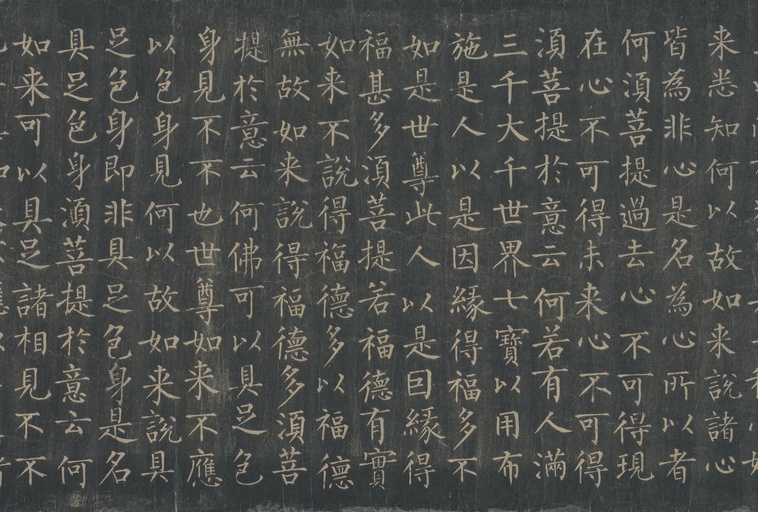 来悉知何以故如来說諸心
皆為非心是名為心所以者
何湏菩提過去心不可得現
在心不可得未来心不可得
湏菩提於意云何若有人滿
三千大千世界七寶以用布
施是人以是因緣得福多不
如是世尊此人以是囙緣得
福甚多湏菩提若福德有實
如来不說得福德多以福德
無故如来說得福德多湏菩
提於意云何佛可以具足色
身見不不也世尊如来不應
以色身見何以故如来說具
足色身即非具足色身是名
具足色身湏菩提於意云何
如来可以具足諸相見不不